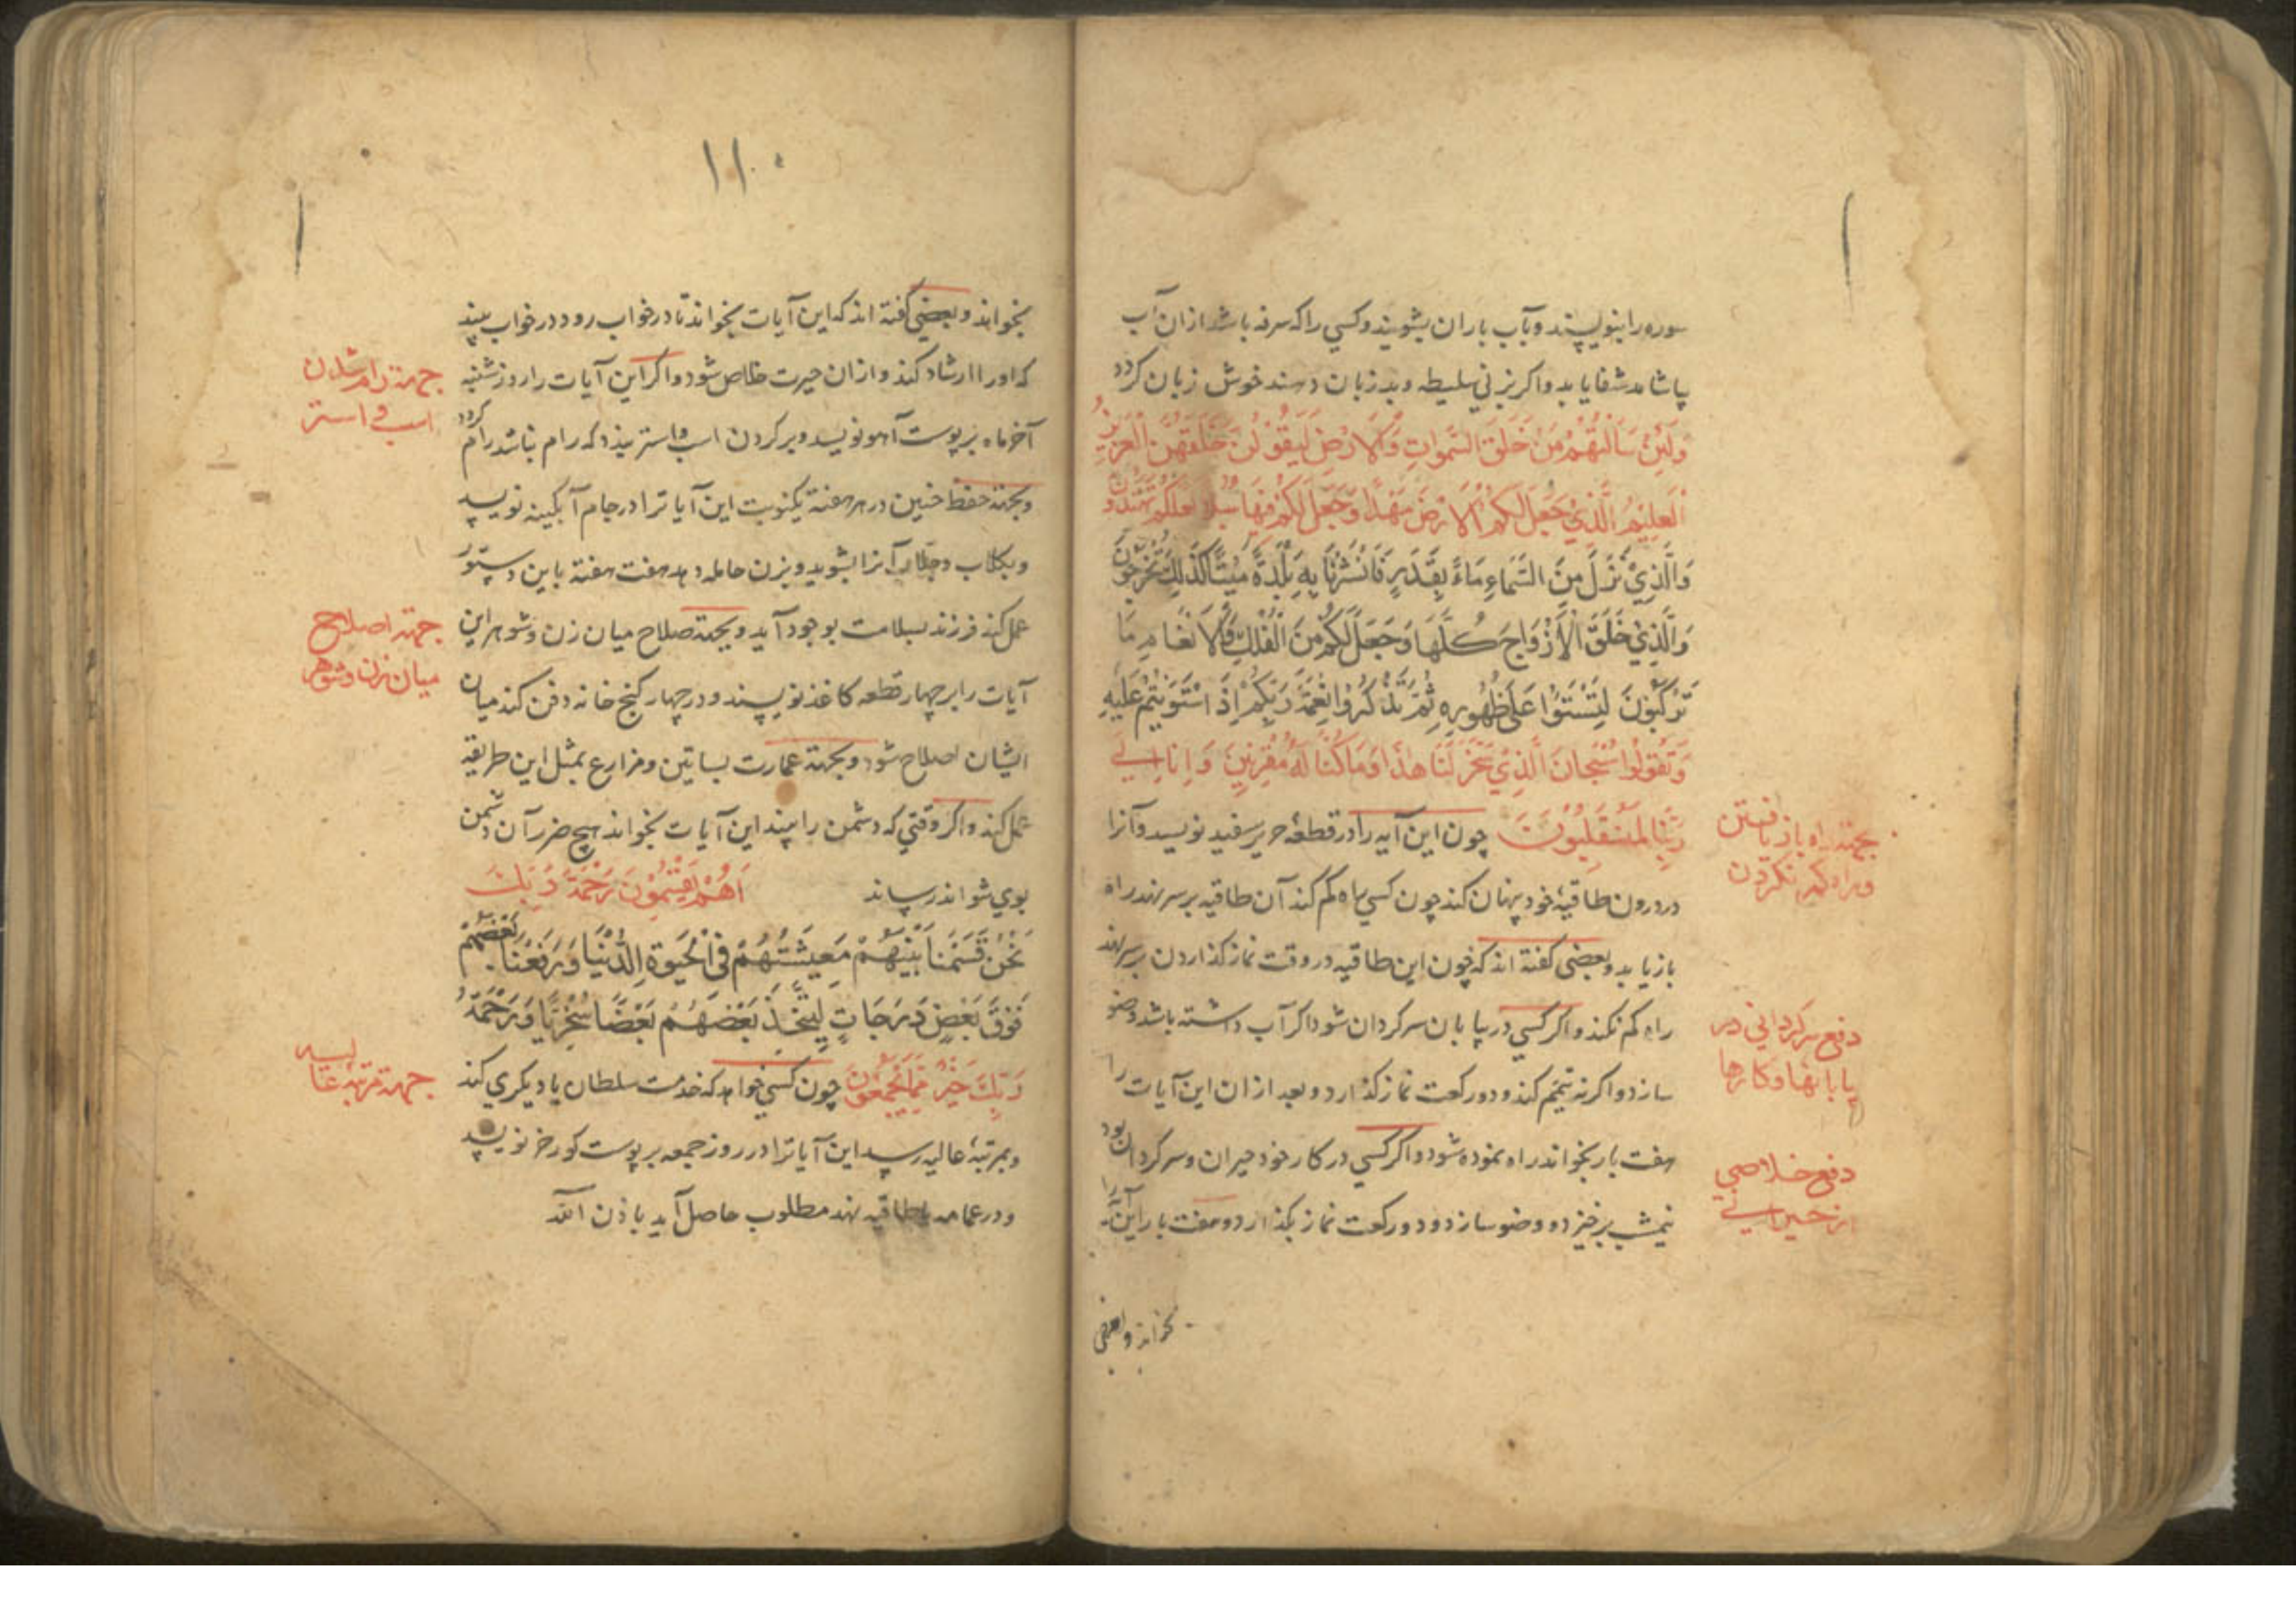 سوره را بنویسند و بآب باران بشویند و کسی را که سرفه باشد ازان آب
بیاشامد شفا یابد و اکر بزنی سلیطه و بد زبان دهند خوش زبان کردد
وَلَئِنْ سَاَلْتَهُمْ مَنْ خَلَقَ السَّمٰوَاتِ وَالْاَرْضَ لَيَقُولُنَّ خَلَقَهُنَّ الْعَزِيزُ
الْعَلِيمُ الَّذِي جَعَلَ لَكُمُ الْاَرْضَ مَهْدًا وَجَعَلَ لَكُمْ فِيهَا سُبُلًا لَعَلَّكُمْ تَهْتَدُونَ
وَالَّذِي نَزَّلَ مِنَ السَّمَاءِ مَاءً بِقَدَرٍ فَاَنْشَرْنَا بِهِ بَلْدَةً مَيْتًا كَذٰلِكَ تُخْرَجُونَ
وَالَّذِي خَلَقَ الْاَزْوَاجَ كُلَّهَا وَجَعَلَ لَكُمْ مِنَ الْفُلْكِ وَالْاَنْعَامِ مَا
تَرْكَبُونَ لِتَسْتَوُا عَلَى ظُهُورِهِ ثُمَّ تَذْكُرُوا نِعْمَةَ رَبِّكُمْ اِذَا اسْتَوَيْتُمْ عَلَيْهِ
وَتَقُولُوا سُبْحَانَ الَّذِي سَخَّرَ لَنَا هٰذَا وَمَا كُنَّا لَهُ مُقْرِنِينَ وَاِنَّا اِلَى
رَبِّنَا لَمُنْقَلِبُونَ چون این آیه را در قطعه حریر سفید نویسد و آنرا
بجهته راه باز یافتن
و راه کم نکردن
در درون طاقیه خود پنهان کند چون کسی راه کم کند آن طاقیه بر سر نهد راه
باز یابد و بعضی کفته اند که چون این طاقیه در وقت نماز کذاردن بر سر نهد
راه کم نکند و اکر کسی در بیابان سرکردان شود اکر آب داشته باشد وضو
دفع سرکردانی در
بیابانها و کارها
سازد و اکر نه تیمم کند و دو رکعت نماز کذارد و بعد ازان این آیات را
هفت بار بخواند راه نموده شود و اکر کسی در کار خود حیران و سرکردان بود
دفع خلاصی
از حیرانی
نیمشب برخیزد و وضو سازد و دو رکعت نماز بکذارد و هفت بار این آیه را
بخواند و بعضی
۱۱۰
بخواند و بعضی کفته اند که این آیات بخواند تا در خواب رود در خواب بیند
که اورا ارشاد کند و ازان حیرت خلاص شود و اکر این آیات را روز شنبه
جهته رام شدن
اسب و استر
آخر ماه بر پوست آهو نویسد و بر کردن اسب و استر بندد که رام نباشد رام کردد
و بجهته حفظ جنین در هر هفته یکنوبت این آیاترا در جام آبکینه نویسد
و بکلاب و جلاب آنرا بشوید و بزن حامله دهد هفت هفته باین دستور
عمل کند فرزند بسلامت بوجود آید و بجهته صلاح میان زن و شوهر این
جهته اصلاح
میان زن و شوهر
آیات را بر چهار قطعه کاغذ نویسند و در چهار کنج خانه دفن کند میان
ایشان اصلاح شود و بجهته عمارت بساتین و مزارع بمثل این طریقه
عمل کند و اکر وقتی که دشمن را بیند این آیات بخواند هیچ ضرر آن دشمن
بوی نتواند رساند اَهُمْ يَقْسِمُونَ رَحْمَةَ رَبِّكَ
نَحْنُ قَسَمْنَا بَيْنَهُمْ مَعِيشَتَهُمْ فِي الْحَيٰوةِ الدُّنْيَا وَرَفَعْنَا بَعْضَهُمْ
فَوْقَ بَعْضٍ دَرَجَاتٍ لِيَتَّخِذَ بَعْضُهُمْ بَعْضًا سُخْرِيًّا وَرَحْمَةُ
رَبِّكَ خَيْرٌ مِمَّا يَجْمَعُونَ چون کسی خواهد که خدمت سلطان یا دیکری کند
جهته مرتبه عالیه
و بمرتبه عالیه رسد این آیاترا در روز جمعه بر پوست کورخر نویسد
و در عمامه یا طاقیه نهد مطلوب حاصل آید باذن الله